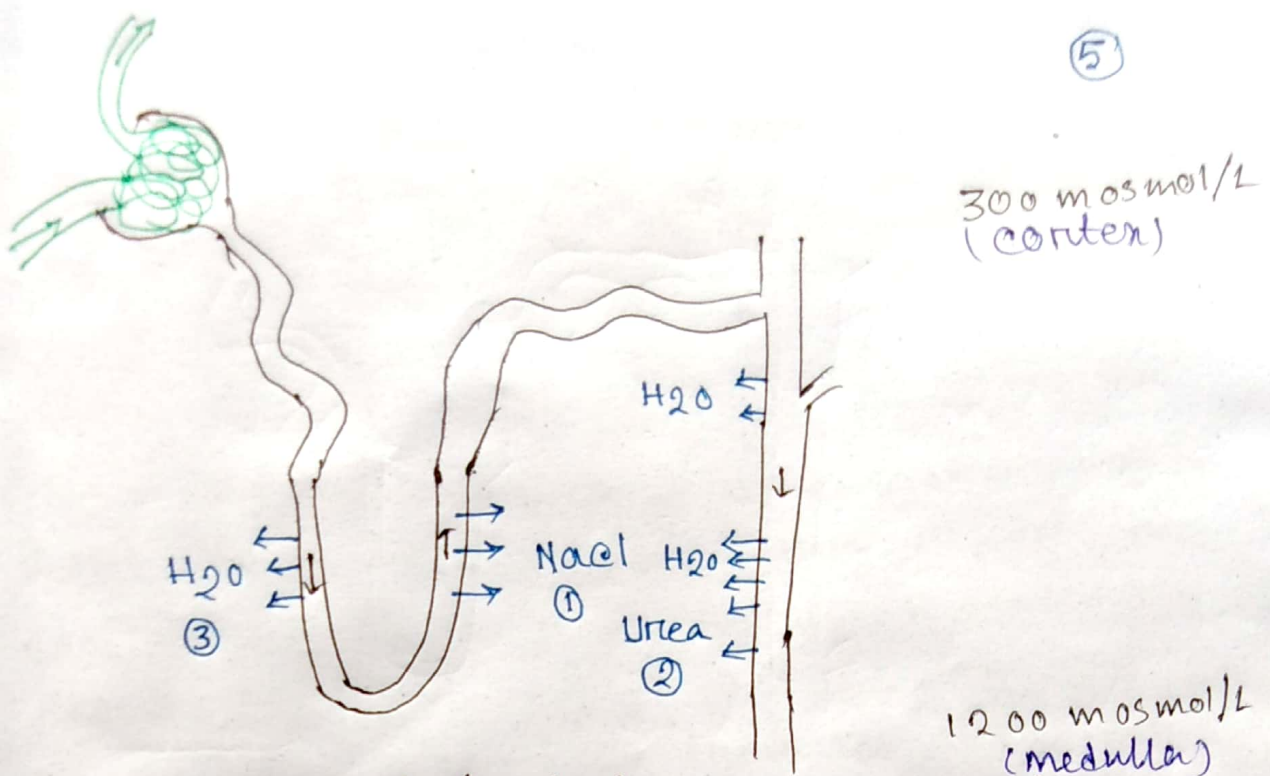 ⑤
300 mosmol/L
(cortex)
H2O
NaCl
①
H2O
H2O
③
Urea
②
1200 mosmol/L
(medulla)